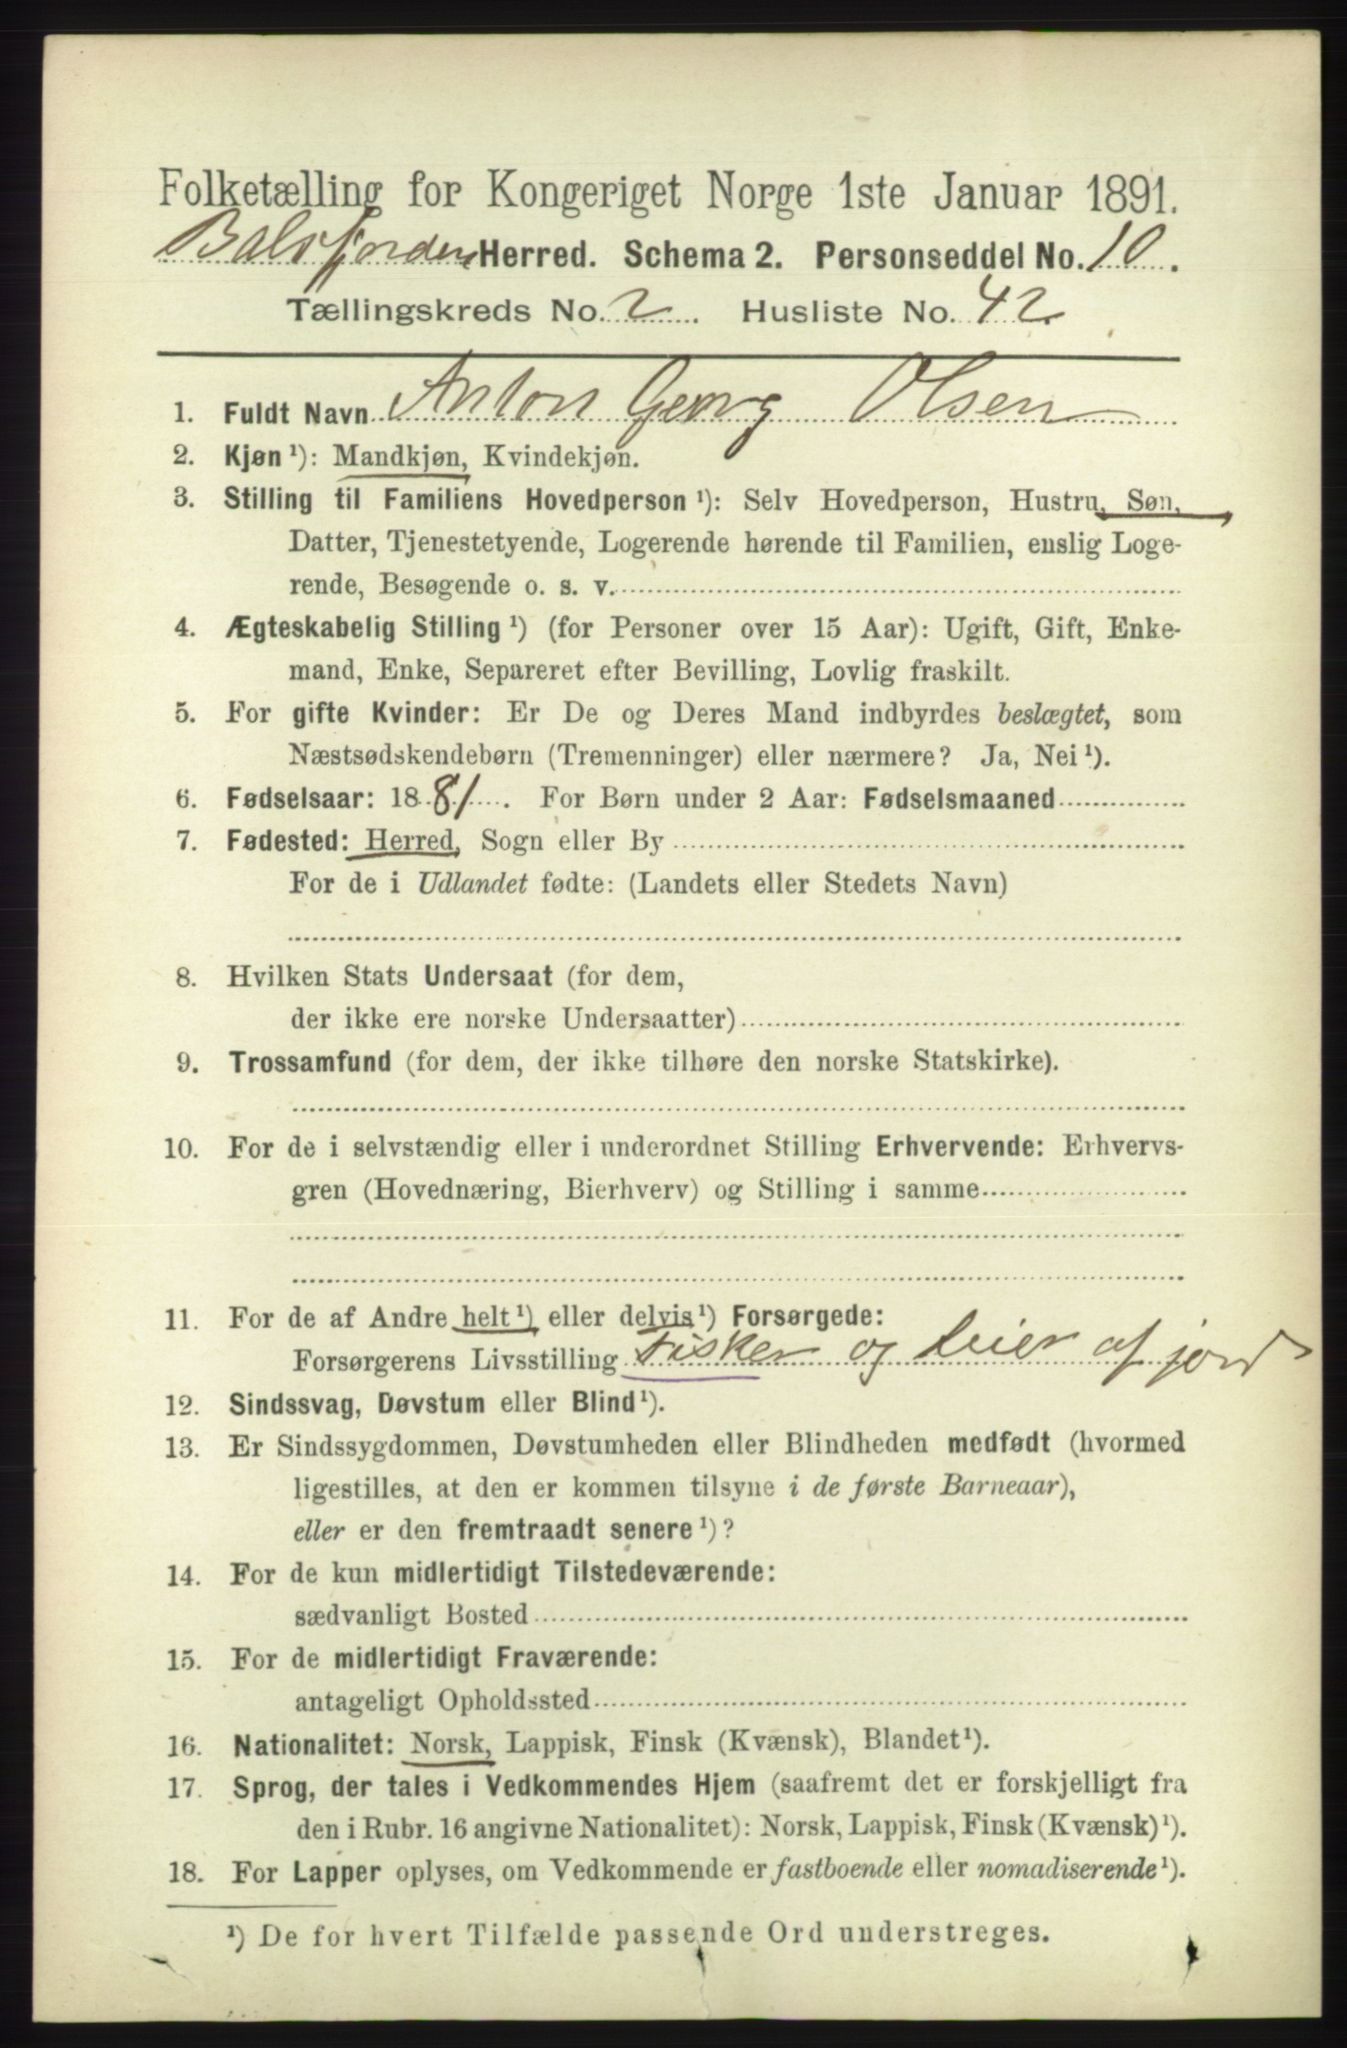 Folketælling for Kongeriget Norge 1ste Januar 1891.
Balsfjorden Herred. Schema 2. Personseddel No. 10.
Tællingskreds No. 2. Husliste No. 42.
1. Fuldt Navn Anton Georg Olsen
2. Kjøn ¹): Mandkjøn, Kvindekjøn.
3. Stilling til Familiens Hovedperson ¹): Selv Hovedperson, Hustru, Søn,
Datter, Tjenestetyende, Logerende hørende til Familien, enslig Loge-
rende, Besøgende o. s. v.
4. Ægteskabelig Stilling ¹) (for Personer over 15 Aar): Ugift, Gift, Enke-
mand, Enke, Separeret efter Bevilling, Lovlig fraskilt.
5. For gifte Kvinder: Er De og Deres Mand indbyrdes beslægtet, som
Næstsødskendebørn (Tremenninger) eller nærmere? Ja, Nei ¹).
6. Fødselsaar: 1881. For Børn under 2 Aar: Fødselsmaaned
7. Fødested: Herred, Sogn eller By
For de i Udlandet fødte: (Landets eller Stedets Navn)
8. Hvilken Stats Undersaat (for dem,
der ikke ere norske Undersaatter)
9. Trossamfund (for dem, der ikke tilhøre den norske Statskirke).
10. For de i selvstændig eller i underordnet Stilling Erhvervende: Erhvervs-
gren (Hovednæring, Bierhverv) og Stilling i samme
11. For de af Andre helt ¹) eller delvis ¹) Forsørgede:
Forsørgerens Livsstilling Fisker og leier af jord
12. Sindssvag, Døvstum eller Blind ¹).
13. Er Sindssygdommen, Døvstumheden eller Blindheden medfødt (hvormed
ligestilles, at den er kommen tilsyne i de første Barneaar),
eller er den fremtraadt senere ¹)?
14. For de kun midlertidigt Tilstedeværende:
sædvanligt Bosted
15. For de midlertidigt Fraværende:
antageligt Opholdssted
16. Nationalitet: Norsk, Lappisk, Finsk (Kvænsk), Blandet ¹).
17. Sprog, der tales i Vedkommendes Hjem (saafremt det er forskjelligt fra
den i Rubr. 16 angivne Nationalitet): Norsk, Lappisk, Finsk (Kvænsk) ¹).
18. For Lapper oplyses, om Vedkommende er fastboende eller nomadiserende ¹).
¹) De for hvert Tilfælde passende Ord understreges.